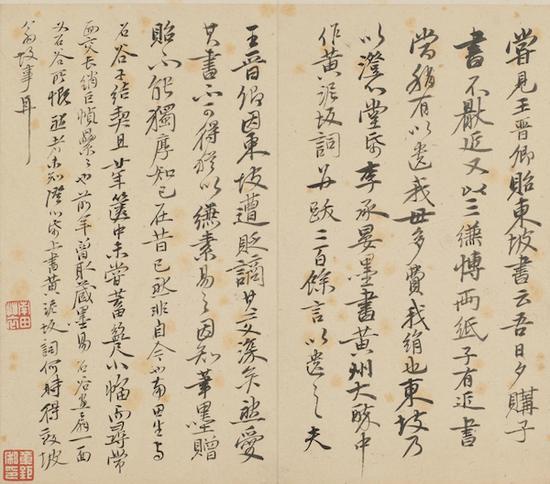 嘗見王晉卿貽東坡書云吾日夕購子
書不厭近又以三縑博兩紙子有近書
當稍有以遺我毋多費我絹也東坡乃
以澄心堂紙李承晏墨書黃州大醉中
作黃泥坂詞并跋二百餘言以遺之夫
王晉卿因東坡遭貶謫其交深矣然愛
其書不可得猶以縑素易之因知筆墨贈
貽不能獨厚知己在昔已然非自今也南田生與
石谷子結契且廿年篋中未嘗蓄其小幅而尋常
面交長綃巨幀纍纍也前年曾取藏墨易石谷畫扇一面
石谷所慨然者未知澄心紙上書黃泥坂詞何時得效坡
翁故事耳